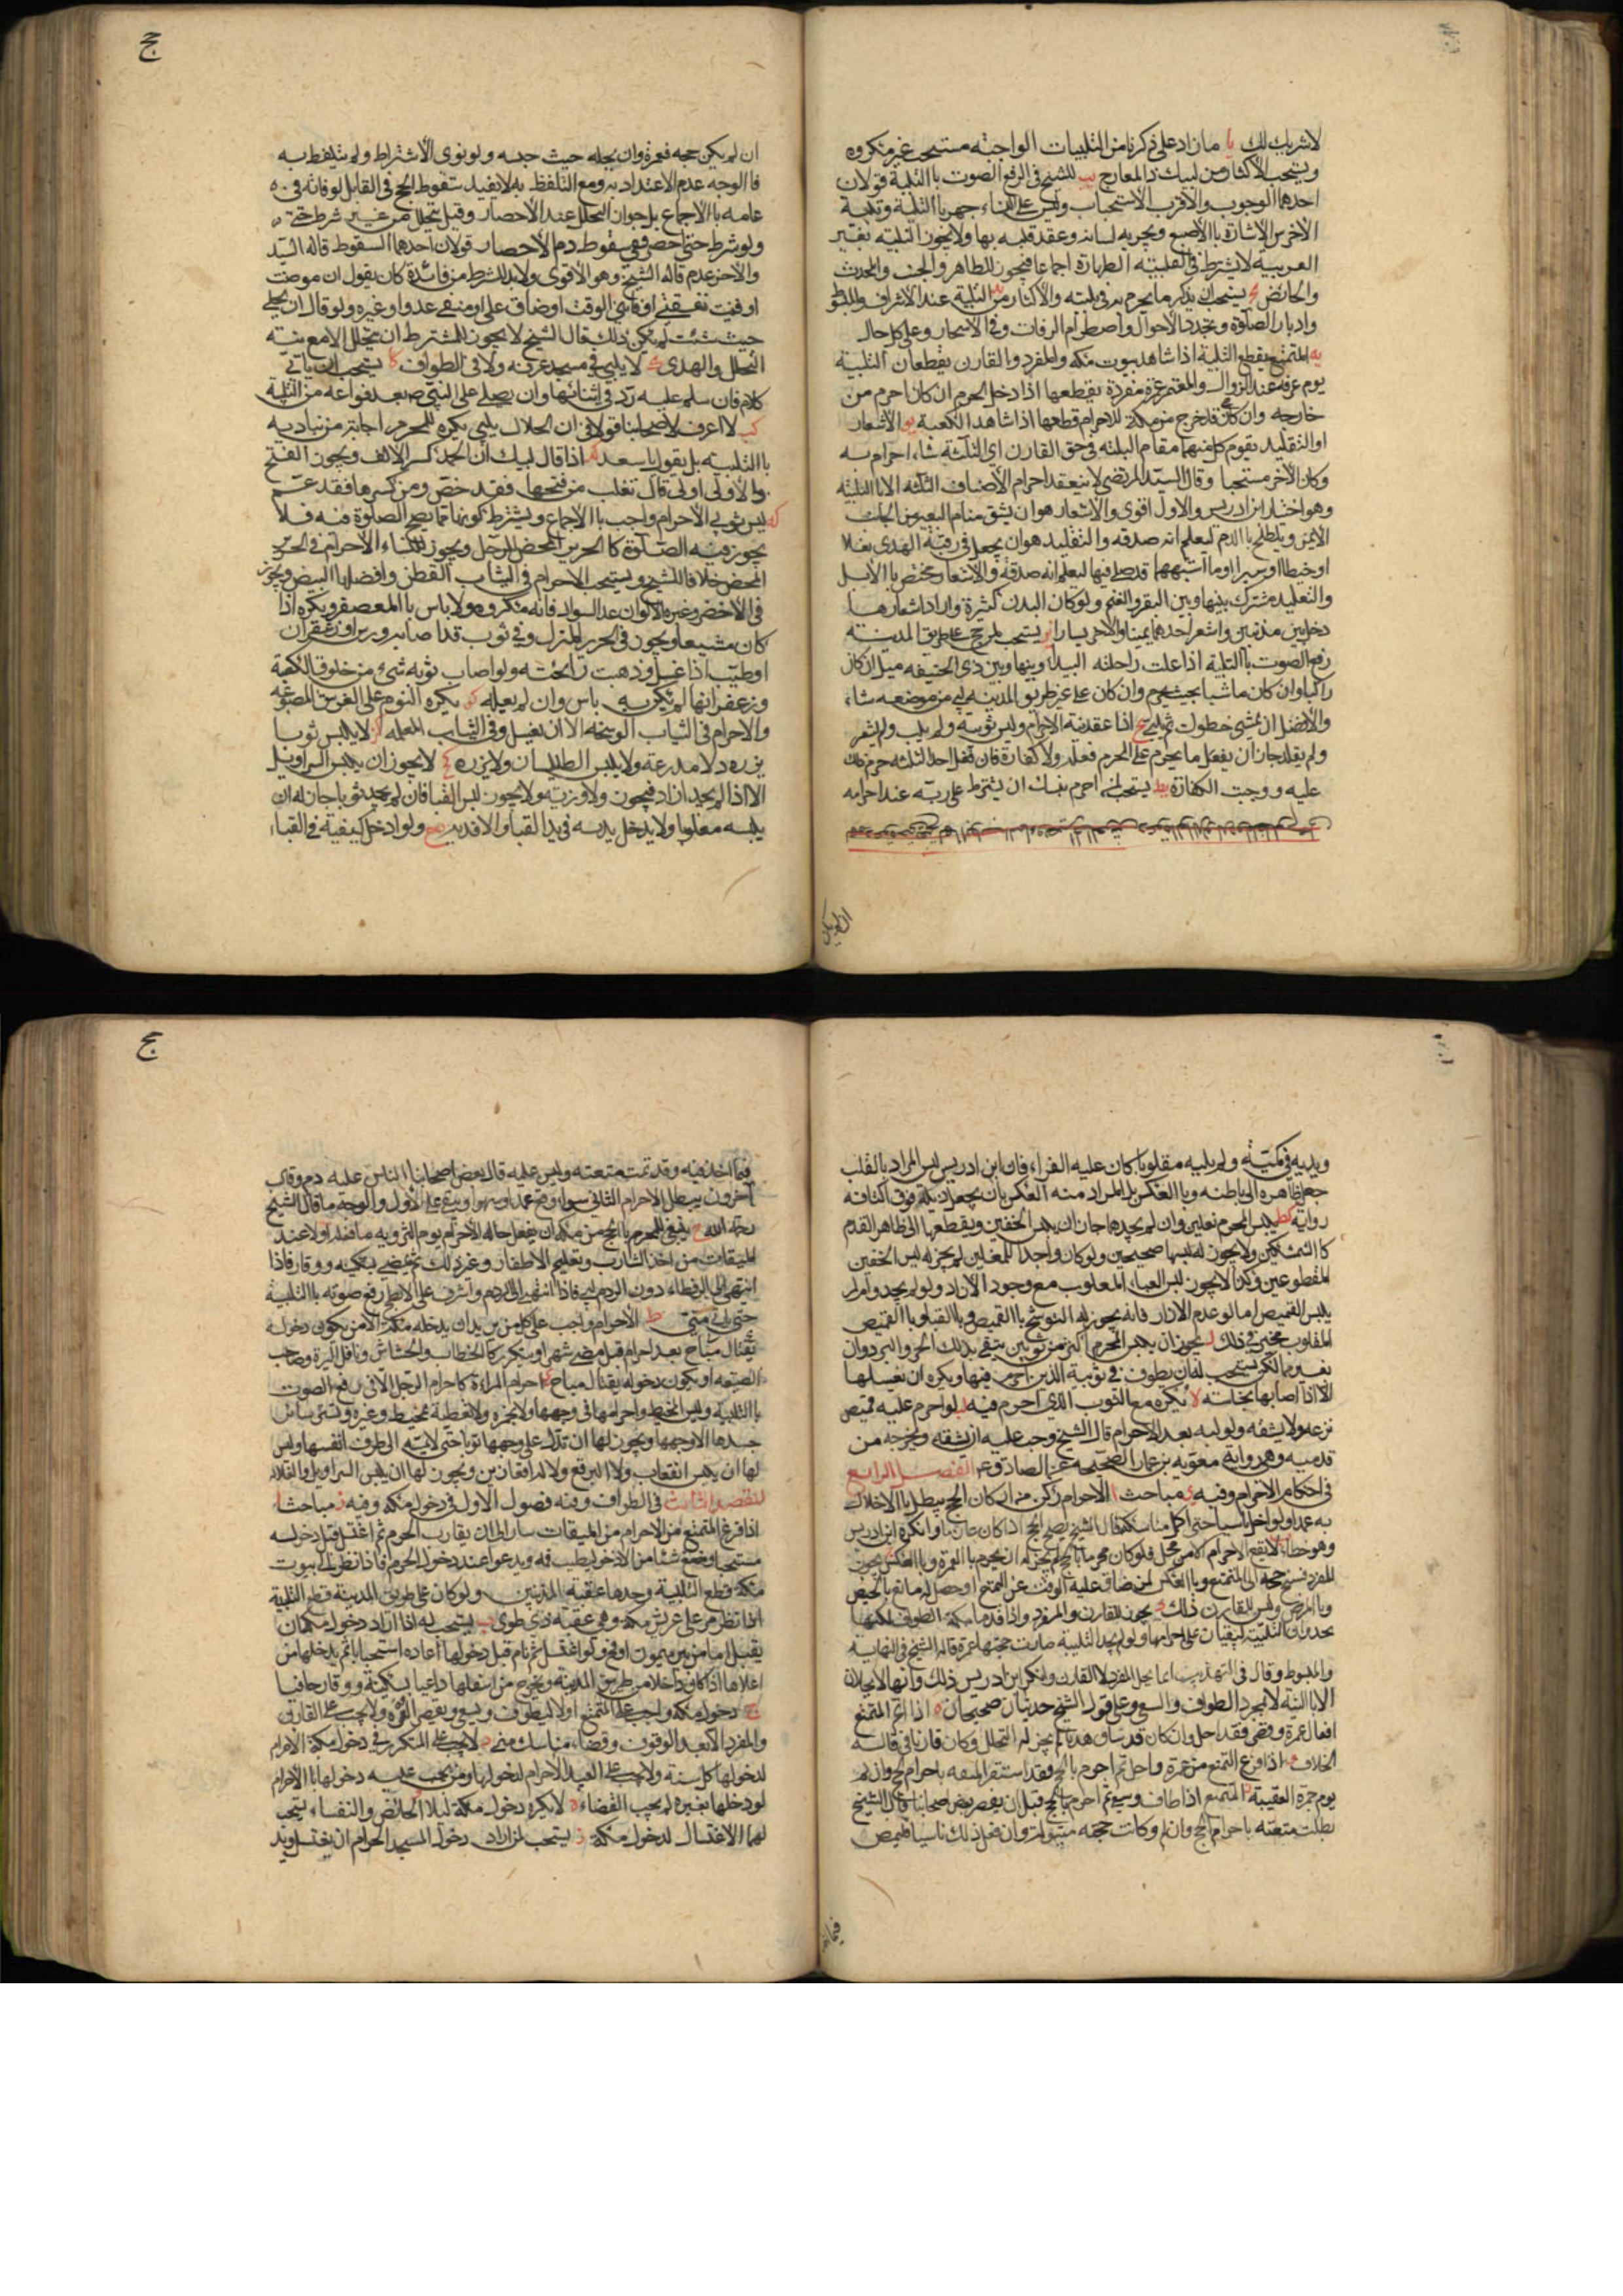 لا شريك لك يا ما زاد على ذكرنا من التلبيات الواجبة مستحب غير مكروه
ويستحب الاكثار من لبيك ذا المعارج يب للشيخ في الرفع الصوت باالتلبية قولان
احدهما الوجوب والاقرب الاستحباب وليس على النساء جهر باالتلبية وتلبية
الاخرس الاشارة باالاصبع وتحريه لسانه وعقد قلبه بها ولا يجوز التلبية بغير
العربية لا يشترط في التلبية الطهارة اجماعا فيجوز للطاهر والجنب والمحدث
والحائض يج يستحب ان يذكر ما يحرم به في تلبيته والاكثار من التلبية عند الاشراف والهبوط
وادبار الصلوة وتجدد الاحوال واصطرام الرفاق وفي الاسحار وعلى كل حال
يه المتمتع يقطع التلبية اذا شاهد بيوت مكة والمفرد والقارن يقطعان التلبية
يوم عرفة عند الزوال والمعتمر عمرة مفردة يقطعها اذا دخل الحرم ان كان احرم من
خارجه وان كان قد خرج من مكة للاحرام قطعها اذا شاهد الكعبة يو الاشعار
او التقليد يقوم كل منهما مقام التلبية في حق القارن اي الثلثة شاء احرام به
وكان الاخر مستحبا وقال السيد المرتضى لا ينعقد احرام الاصناف الثلثة الا باالتلبية
وهو اختار ابن ادريس والاول اقوى والاشعار هو ان يشق سنام البعير من الجانب
الايمن ويلطخ باالدم ليعلم انه صدقه والتقليد هو ان يجعل في رقبة الهدى نعلا
او خيطا او سيرا او ما اشبههما قد صلى فيها ليعلم انه صدقة والاشعار مختص باالابل
والتقليد مشترك بينها وبين البقر والغنم ولو كان البدن كثيرة واراد اشعارها
دخل بين بدنتين واشعر احدهما يمينا والاخرى يسارا يز يستحب لمن حج على طريق المدينة
رفع الصوت باالتلبية اذا علت راحلته البيداء وبينها وبين ذي الحليفه ميل ان كان
راكبا وان كان ماشيا بحيث يحرم وان كان على غير طريق المدينة لبى من موضعه شاء
والافضل ان يمشي خطوات ثم يلبي يح اذا عقد نية الاحرام ولبس ثوبيه ولم يلب ولم يشعر
ولم يقلد جاز ان يفعل ما يحرم على المحرم فعله ولا كفارة فان فعل احد الثلثة حرم ذلك
عليه ووجبت الكفارة يط يستحب لمن احرم بنسك ان يشترط على ربه عند احرامه
ان لم يكن
ج
ان لم يكن حجه فعمرة وان يحله حيث حبسه ولو نوى الاشتراط ولم يتلفظ به
فاالوجه عدم الاعتداد به ومع التلفظ به لا يفيد سقوط الحج في القابل لو فاته في
عامه باالاجماع بل جواز التحلل عند الاحصار وقيل يتحلل من غير شرط حتى
ولو شرط حتى احصر ففي سقوط دم الاحصار قولان احدهما السقوط قاله السيد
والاخر عدم قاله الشيخ وهو الاقوى ولابد للشرط من فائدة كان يقول ان مرضت
او فنيت نفقتي او فاتني الوقت او ضاق علي او منعني عدو او غيره ولو قال ان تحلني
حيث شئت لم يكن ذلك قال الشيخ لا يجوز للمشترط ان يتحلل الا مع نية
التحلل والهدي ك لا يلبي في مسجد عرفة ولا في الطواف كا يستحب ان ياتي
كلام فان سلم عليه رد في اثنائها وان يصلي على النبي ص بعد فراغه من التلبية
كب لا اعرف لاصحابنا قولا في ان الحلال يلبي يكره للمحرم اجابة من يناديه
باالتلبية بل يقول يا سعد كد اذا قال لبيك ان الحمد كسر الالف ويجوز الفتح
والاولى اولى قال ثعلب من فتحها فقد خص ومن كسرها فقد عم
كه لبس ثوبي الاحرام واجب باالاجماع ويشترط كونهما مما يصح الصلوة فيه فلا
يجوز فيه الصلوة كا الحرير المحض للرجل ويجوز للنساء الاحرام في الحرير
المحض خلافا للشيخ ويستحب الاحرام في الثياب القطن وافضلها البيض ويجوز
في الاخضر وغيره الالوان عدا السواد فانه مكروه ولا باس باالمعصفر ويكره اذا
كان مشبعا ويجوز في الحرير الممزوج وفي ثوب قد اصابه ورس او زعفران
او طيب اذا غسل وذهبت رائحته ولو اصاب ثوبه شيء من خلوق الكعبة
وزعفرانها لم يكن به باس وان لم يغسله كو يكره النوم على الفرش المصبوغه
والاحرام في الثياب الوسخة الا ان يغسل وفي الثياب المعلمه كز لا يلبس ثوبا
يزره ولا مدرعة ولا يلبس الطيلسان ولا يزره كح لا يجوز ان يلبس السراويل
الا اذا لم يجد ازاد فيجوز ولا فدية ولا يجوز لبس القبا فان لم يجد ثوبا جاز له ان
يلبسه مقلوبا ولا يدخل يديه في يدا القبا ولا فدية ولو ادخل كتفيه في القباء
ويديه في كميه ولم يلبسه مقلوبا كان عليه الفداء قال ابن ادريس ليس المراد بالقلب
جعل ظاهره الى باطنه وباالعكس بل المراد منه العكس بان يجعل ذيله فوق اكتافه
رواية كط يلبس المحرم نعلين وان لم يجدهما جاز ان يلبس الخفين ويقطعهما الى ظاهر القدم
كا الشمشكين ولا يجوز له لبسها صحيحين ولو كان واجدا للنعلين لم يجز له لبس الخفين
المقطوعين وكذا لا يجوز لبس القباء المقلوب مع وجود الازار ولو لم يجد وامرار
يلبس القميص اما لو عدم الازار فانه يجوز له التوشح باالقميص وباالقبا وباالقميص
المقلوب مخير في ذلك ل يجوز ان يلبس المحرم اكثر من ثوبين يتقي بذلك الحر والبرد وان
يغيرهما لكن يستحب له ان يطوف في ثوبيه الذين احرم فيهما ويكره ان يغسلهما
الا اذا اصابها نجاسة لا يكره بيع الثوب الذي احرم فيه لب لو احرم عليه قميص
نزعه ولا يشقه ولو لبسه بعد الاحرام قال الشيخ وجب عليه ان يشقه ويخرجه من
قدميه وهي رواية معوية بن عمار الصحيحة عن الصادق ع الفصل الرابع
في احكام الاحرام وفيه ى مباحث ا الاحرام ركن من اركان الحج يبطل باالاخلال
به عمدا ولو اخل ناسيا حتى اكمل مناسكه قال الشيخ يصح الحج اذا كان عازما وانكره ابن ادريس
وهو خطأ ب لا يقع الاحرام الا من محل فلو كان محرما بالحج لم يجز له ان يحرم باالعمرة وباالعكس يجوز
للمفرد فسخ حجه الى المتمتع وباالعكس لمن ضاق عليه الوقت عن التمتع او حصل له مانع بالحيض
وباالمرض وليس للقارن ذلك د يجوز للقارن والمفرد واذا قدما مكة الطواف لكنهما
يجددان التلبية ليبقيان على احرامهما ولو لم يجدا التلبية صارت حجتهما عمرة قاله الشيخ في النهاية
والمبسوط وقال في التهذيب انما يحل المفرد لا القارن وانكر ابن ادريس ذلك وانهما لا يحلان
الا باالنية لا بمجرد الطواف والسعي وعلى قول الشيخ حديثان صحيحان ه اذا اتم المتمتع
افعال عمرة وقصر فقد احل وان كان قد ساق هديا لم يجز له التحلل وكان قارنا في قاله
الخلاف و اذا فرغ المتمتع من عمرة واحل ثم احرم بالحج فقد استقر المتعه باحرام الحج وان لم
يوم جمرة العقيبة ز المتمتع اذا طاف وسعى ثم احرم بالحج قبل ان يقصر بعض اصحابنا قال الشيخ
بطلت متعته باحرام الحج وان لم وكانت حجته مبتولة وان فعل ذلك ناسيا فليمض
فيما اخذ
ج
فيما اخذ فيه وقد تمت متعته وليس عليه قال بعض اصحابنا الناس عليه دم وقال
اخرون يبطل الاحرام الثاني سواء وقع عمدا او سهوا ويبقى على الاول والوجه ما قال الشيخ
رحمه الله ح ينبغي للمحرم باالحج من مكة ان يفعل حاله الاحرام يوم التروية ما فعله اولا عند
الميقات من اخذ الشارب وتقليم الاظفار وغير ذلك ثم يمضي بسكينه ووقار فاذا
انتهى الى الرقطاء دون الردم لبى فاذا انتهى الى الردم واشرف على الابطح رفع صوته باالتلبية
حتى ياتي منى ط الاحرام واجب على كل من يريد ان يدخله مكة الا من يكون دخوله
لقتال مباح بعد احرام قبل مضي شهر او يتكرر كا الحطاب والحشاش وناقل الميرة وصاحب
الضيعة او يكون دخوله بقتال مباح ى احرام المراءة كاحرام الرجل الا في رفع الصوت
باالتلبية ولبس المخيط واحرامها في وجهها ولا يجزه ولا تغطية بمخيط وغيره وتستر سائر
جسدها الا وجهها ويجوز لها ان تدل على وجهها ثوبا حتى لا يمسه الى طرف انفسها وليس
لها ان يلبس النقاب ولا البرقع ولا القفازين ويجوز لها ان يلبس السراويل والغلاله
المقصد الثالث في الطواف وفيه فصول الاول في دخول مكة وفيه ز مباحث ا
اذا فرغ المتمتع من الاحرام من الميقات سار الى ان يقارب الحرم ثم اغتسل قبل دخوله
مستحبا ومضغ شيئا من الاذخر ليطيب فمه ويدعو عند دخول الحرم فاذا نظر الى بيوت
مكة قطع التلبية وحدها عقبة المدنيين ولو كان على طريق المدينة قطع التلبية
اذا نظر من على عريش مكة وهي عقبة ذي طوى ب يستحب له اذا اراد دخول مكة ان
يقبل اما من بئر ميمون او فخ ولو اغتسل ثم نام قبل دخولها اعاده استحبابا ثم يدخلها من
اعلاها اذا كان داخلا من طريق المدينة ويخرج من اسفلها داعيا بسكينة ووقار حافيا
ج دخول مكة واجب على المتمتع اولا ليطوف ويسعى ويقصر للعمرة ولا يجب على القارن
والمفرد الا بعد الوقوف وقضاء مناسك منى د لا يجب على المتكرر في دخول مكة الاحرام
لدخولها كل سنة ولا يجب على العبد الاحرام لدخولها ومن يجب عليه دخولها باالاحرام
لو دخلها بغيره لم يجب القضاء ه لا يكره دخول مكة ليلا و الحائض والنفساء يستحب
لهما الاغتسال لدخول مكة ز يستحب لمن اراد دخول المسجد الحرام ان يغتسل ويد